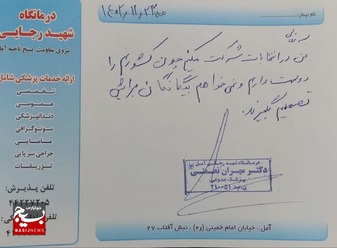 درمانگاه
شهید رجایی
نیروی مقاومت بسیج ناحیه آمل
ارائه خدمات پزشکی شامل
تخصصی
عمومی
دندانپزشکی
سونوگرافی
مامایی
جراحی سرپایی
تزریقات
تلفن پذیرش:
بسیج
BASIJNEWS
نام بیمار:
تاریخ
۱۴۰۲/۱۱/۲۳
من در انتخابات شرکت میکنم چون کشورم را
دوست دارم و نمی‌خواهم بیگانگان برایش
تصمیم بگیرند.
درمانگاه شهید رجایی آمل
دکتر مهران نعمتی
پزشک عمومی
آمل، خیابان امام خمینی (ره)، نبش آفتاب ۲۷